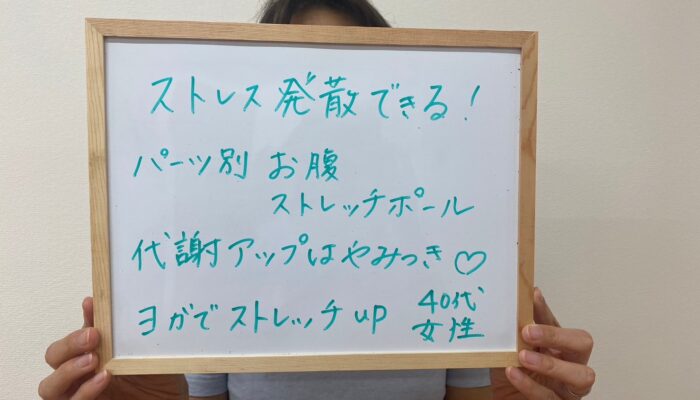 ストレス発散できる!
パーツ別 お腹
ストレッチポール
代謝アップはやみつき♡
ヨガでストレッチup 40代
女性